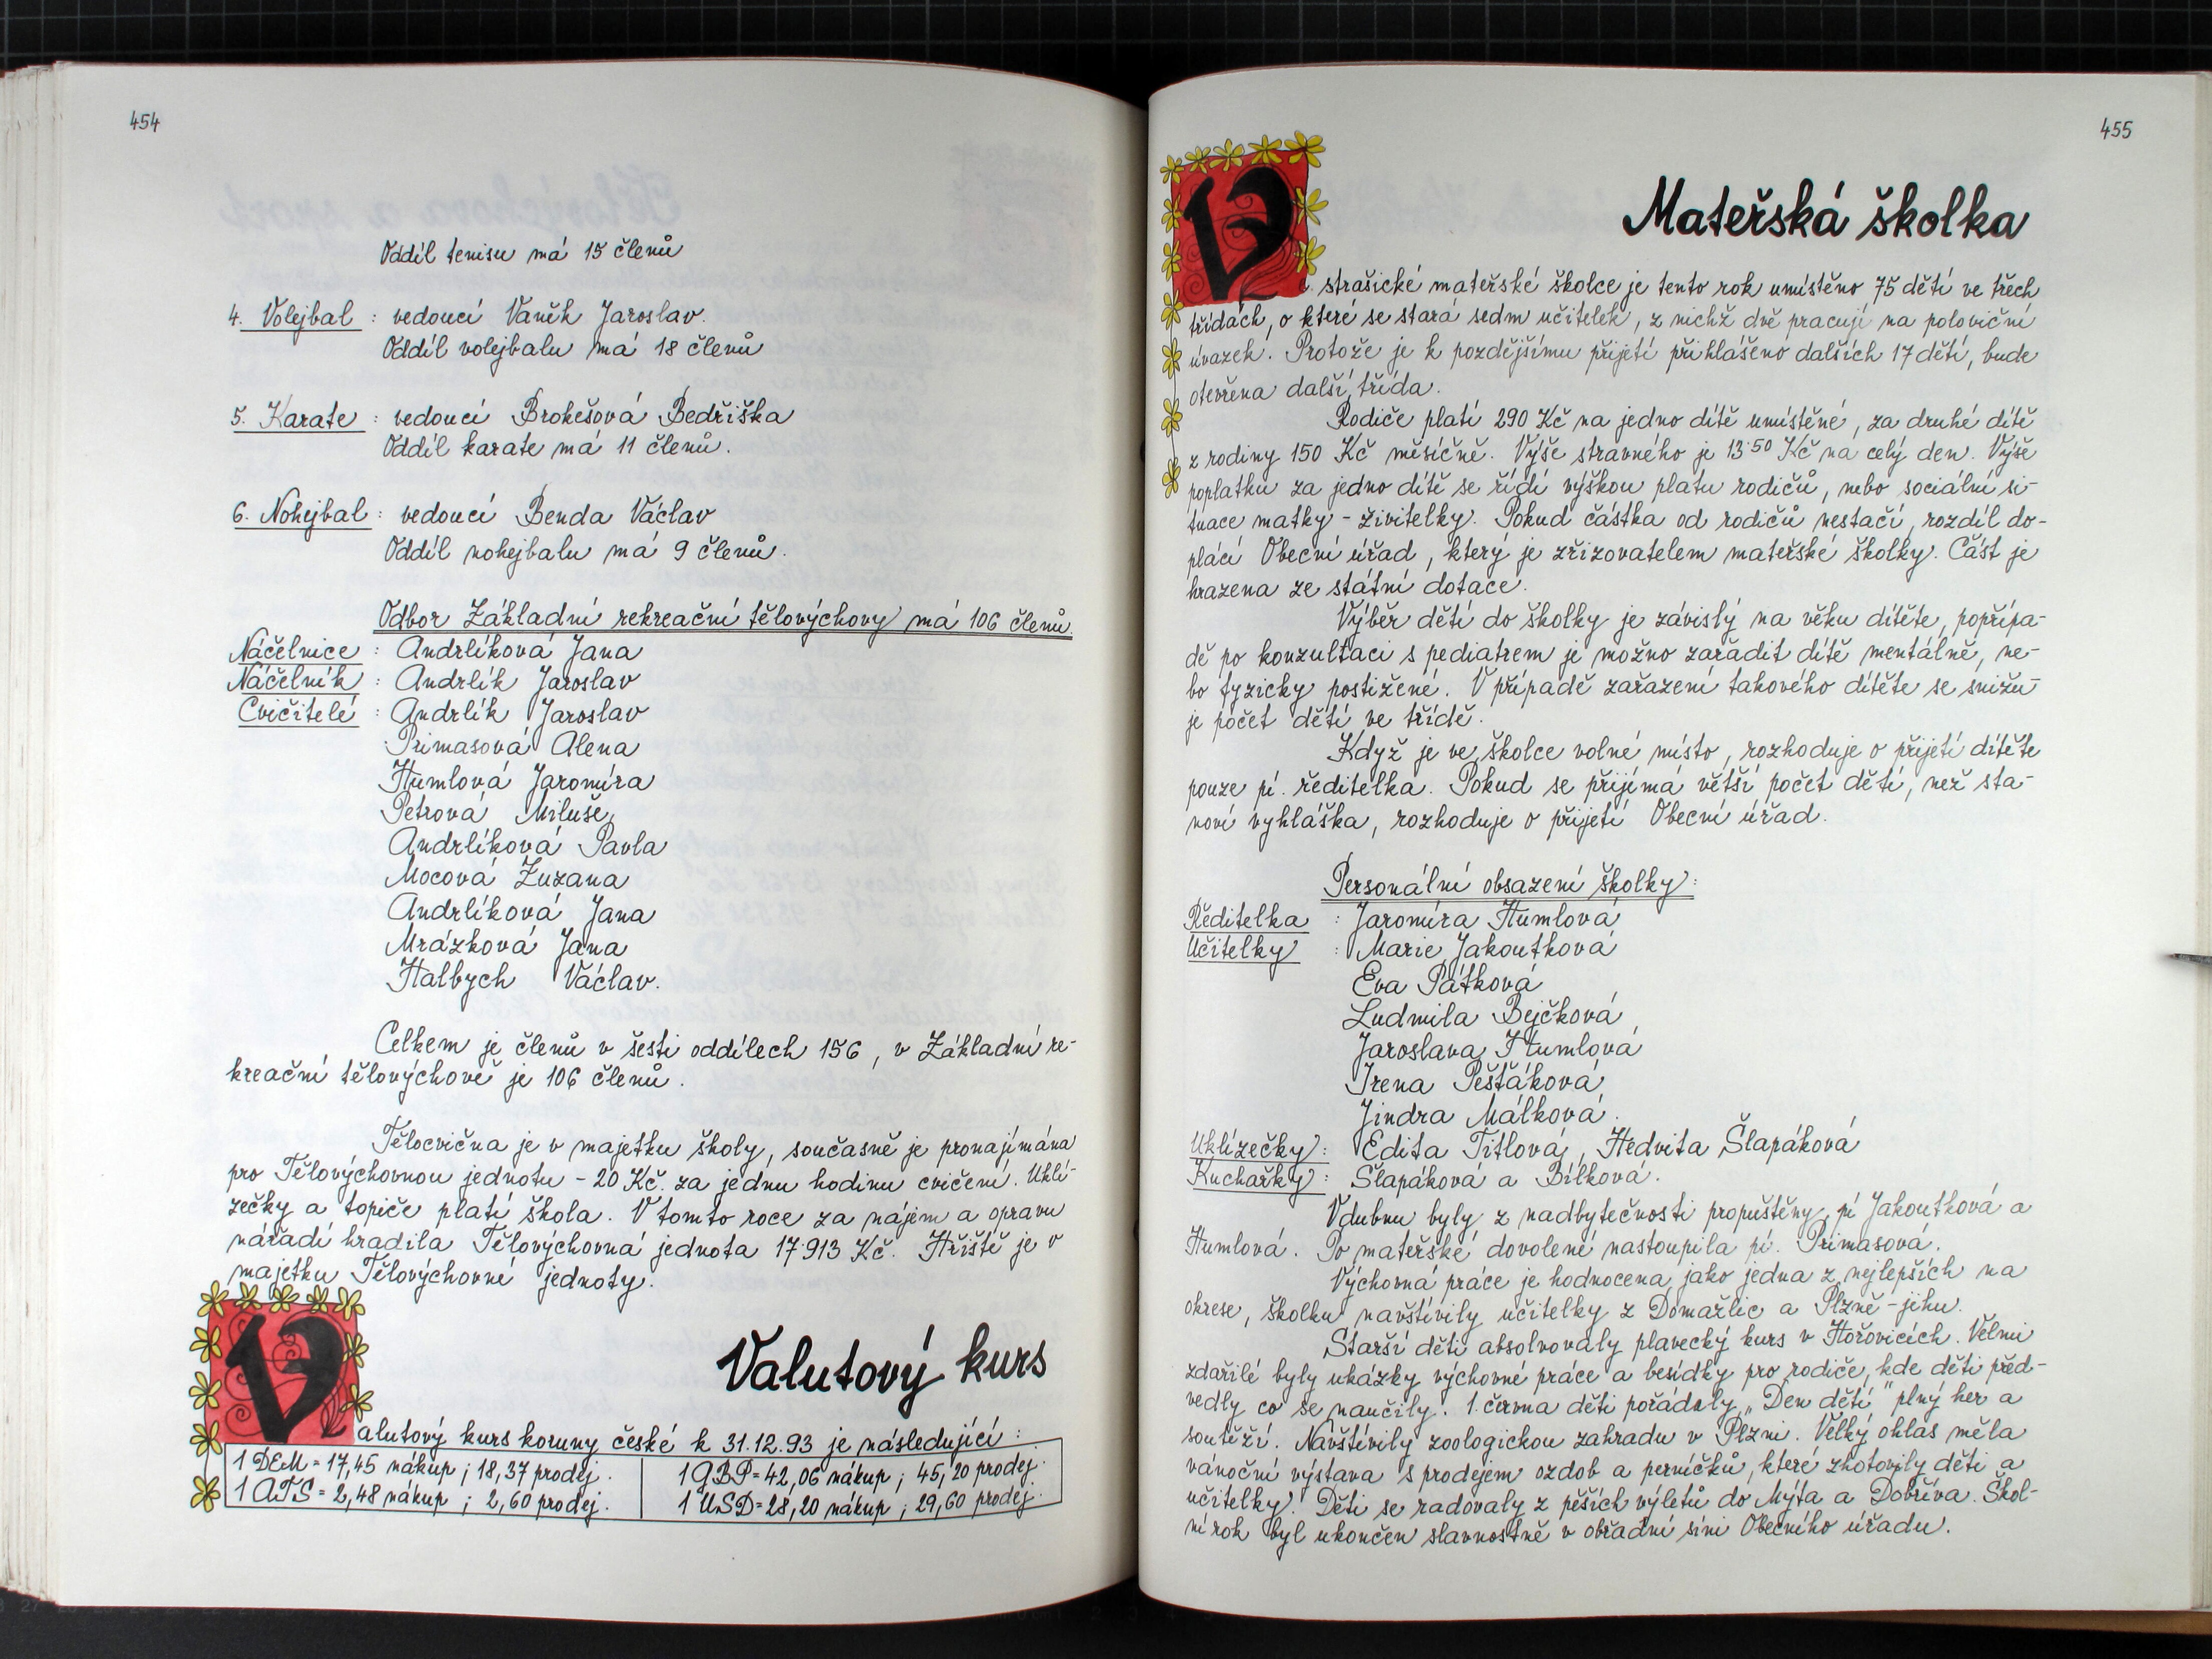 454
Oddíl tenisu má 15 členů
4. Volejbal : vedoucí Vaněk Jaroslav.
Oddíl volejbalu má 18 členů
5. Karate : vedoucí Brokešová Bedřiška
Oddíl karate má 11 členů.
6. Nohejbal : vedoucí Benda Václav
Oddíl nohejbalu má 9 členů.
Odbor Základní rekreační tělovýchovy má 106 členů.
Náčelnice : Andrlíková Jana
Náčelník : Andrlík Jaroslav
Cvičitelé : Andrlík Jaroslav
Primasová Alena
Humlová Jaromíra
Petrová Miluše,
Andrlíková Pavla
Mocová Zuzana
Andrlíková Jana
Mrázková Jana
Halbych Václav.
Celkem je členů v šesti oddílech 156, v Základní re-
kreační tělovýchově je 106 členů.
Tělocvična je v majetku školy, současně je pronajímána
pro Tělovýchovnou jednotu - 20 Kč. za jednu hodinu cvičení. Uklí-
zečky a topiče platí škola. V tomto roce za nájem a opravu
nářadí hradila Tělovýchovná jednota 17.913 Kč. Hřiště je v
majetku Tělovýchovné jednoty.
Valutový kurs
Valutový kurs koruny české k 31.12.93 je následující :
1 DEM = 17,45 nákup ; 18,37 prodej. 1 GBP = 42,06 nákup ; 45,20 prodej.
1 ATS = 2,48 nákup ; 2,60 prodej. 1 USD = 28,20 nákup ; 29,60 prodej.
455
Mateřská školka
V strašické mateřské školce je tento rok umístěno 75 dětí ve třech
třídách, o které se stará sedm učitelek, z nichž dvě pracují na poloviční
úvazek. Protože je k pozdějšímu přijetí přihlášeno dalších 17 dětí, bude
otevřena další třída.
Rodiče platí 290 Kč na jedno dítě umístěné, za druhé dítě
z rodiny 150 Kč měsíčně. Výše stravného je 13.50 Kč na celý den. Výše
poplatku za jedno dítě se řídí výškou platu rodičů, nebo sociální si-
tuace matky - živitelky. Pokud částka od rodičů nestačí, rozdíl do-
plácí Obecní úřad, který je zřizovatelem mateřské školky. Část je
hrazena ze státní dotace.
Výběr dětí do školky je závislý na věku dítěte, popřípa-
dě po konzultaci s pediatrem je možno zařadit dítě mentálně, ne-
bo fyzicky postižené. V případě zařazení takového dítěte se snižu-
je počet dětí ve třídě.
Když je ve školce volné místo, rozhoduje o přijetí dítěte
pouze pí. ředitelka. Pokud se přijímá větší počet dětí, než sta-
noví vyhláška, rozhoduje o přijetí Obecní úřad.
Personální obsazení školky :
Ředitelka : Jaromíra Humlová
Učitelky : Marie Jakoutková
Eva Pátková
Ludmila Bejčková
Jaroslava Humlová
Irena Pešťáková
Jindra Málková.
Uklízečky : Edita Titlová, Hedvita Šlapáková
Kuchařky : Šlapáková a Bílková.
V dubnu byly z nadbytečnosti propuštěny pí Jakoutková a
Humlová. Po mateřské dovolené nastoupila pí. Primasová.
Výchovná práce je hodnocena jako jedna z nejlepších na
okrese, školku navštívily učitelky z Domažlic a Plzně - jihu.
Starší děti absolvovaly plavecký kurs v Hořovicích. Velmi
zdařilé byly ukázky výchovné práce a besídky pro rodiče, kde děti před-
vedly co se naučily. 1. června děti pořádaly „Den dětí" plný her a
soutěží. Navštívily zoologickou zahradu v Plzni. Velký ohlas měla
vánoční výstava s prodejem ozdob a perníčků, které zhotovily děti a
učitelky. Děti se radovaly z pěších výletů do Mýta a Dobříva. Škol-
ní rok byl ukončen slavnostně v obřadní síni Obecního úřadu.